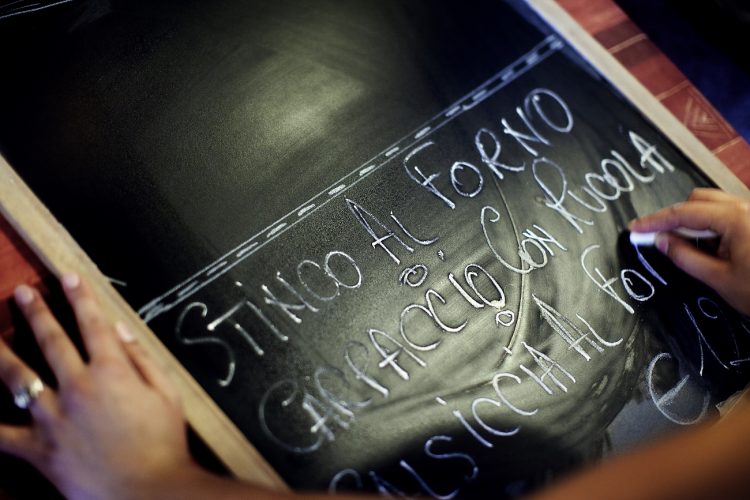 STINCO AL FORNO
O
CARPACCIO CON RUCOLA
O
SALSICCIA AL FOR
€ 12